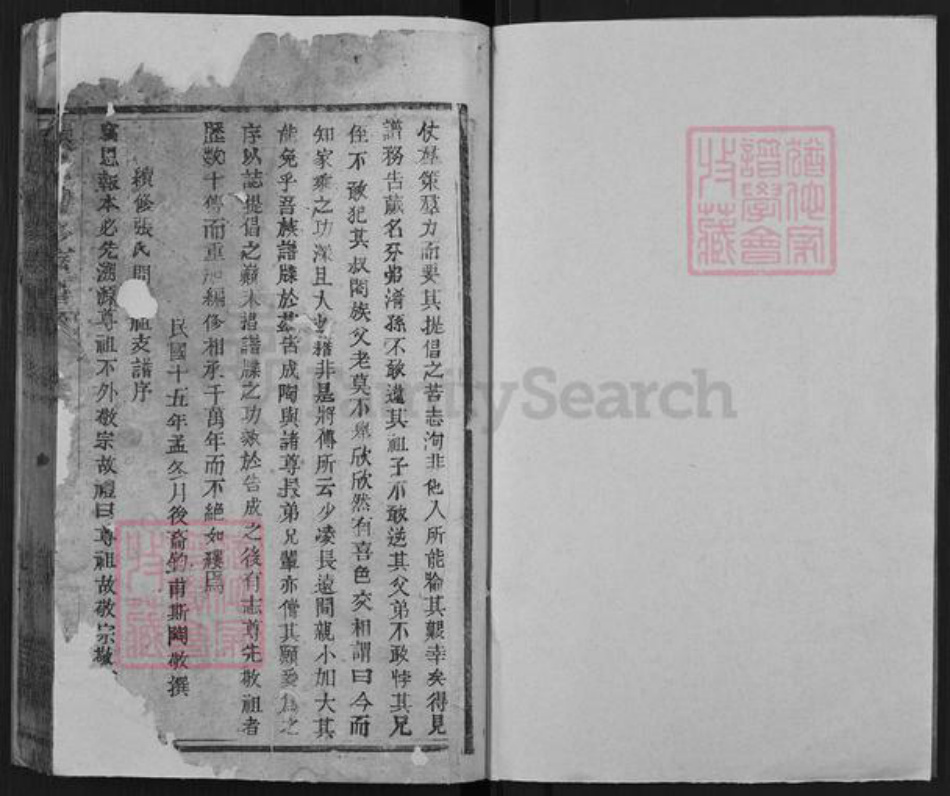 仗羣策羣力而要其提倡之苦志洵非他人所能喻其艱幸矣得見
譜務告蕆名分弗淆孫不敢違其祖子不敢逆其父弟不敢悖其兄
侄不敢犯其叔闔族父老莫不欣欣然有喜色交相謂曰今而
知家乘之功深且大非是將傳所云少凌長遠間親小加大其
能免乎吾族譜牒於茲告成陶與諸尊長弟兄輩亦償其願爰為之
序以誌提倡之巔末譜牒之功於告成之後有志尊先敬祖者
歷數十傳而重加編修相承千萬年而不絕如焉
民國十五年孟冬月後裔鈞甫斯陶敬撰
續修張氏祖支譜序
恩報本必先溯源尊祖不外敬宗故禮曰尊祖故敬宗敬
猶他家譜學會收藏
猶他家譜學會收藏
FamilySearch